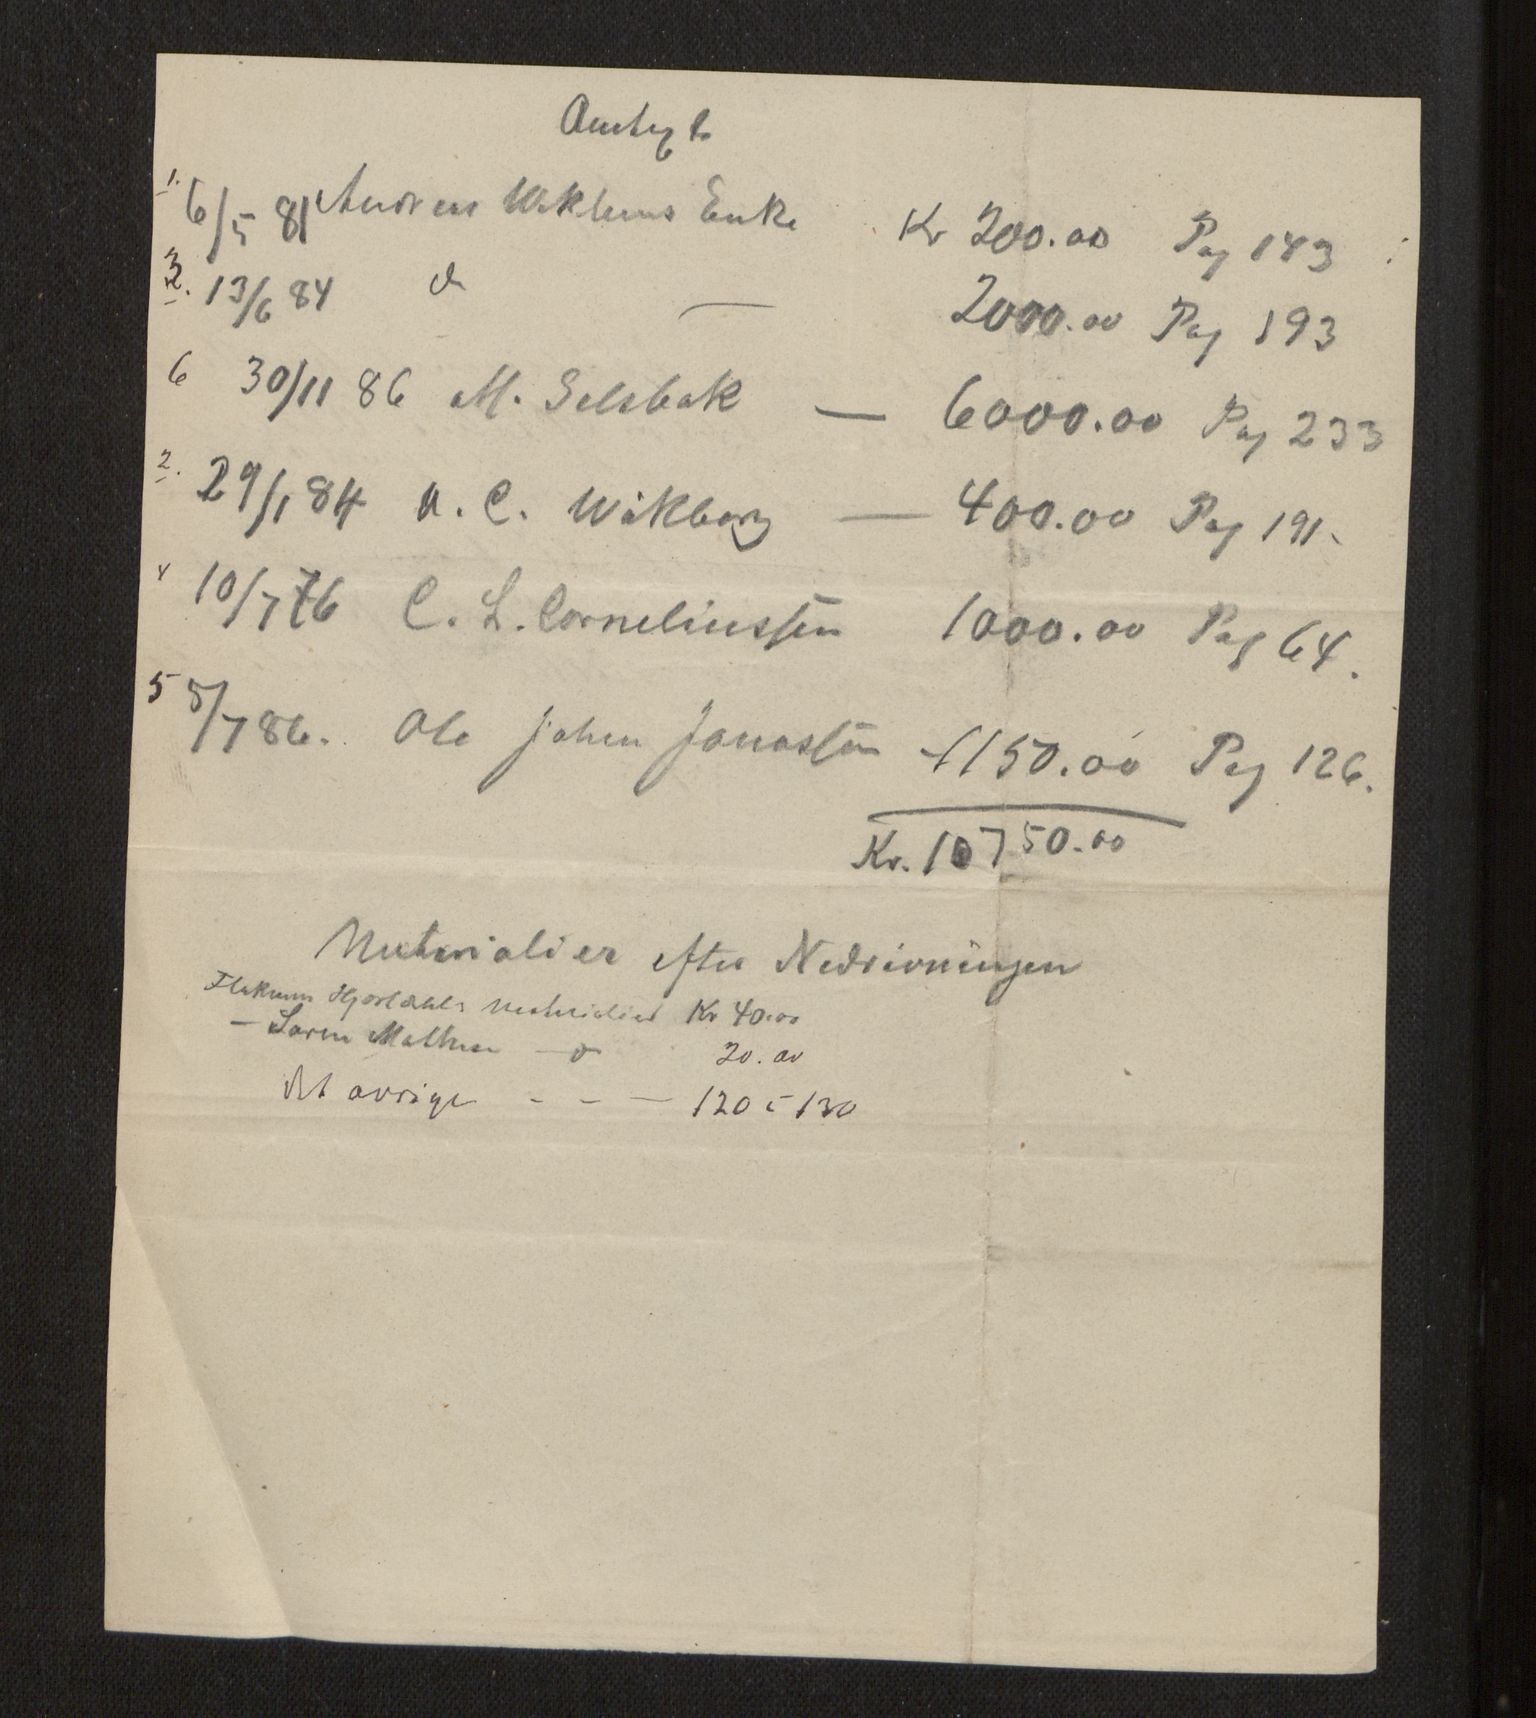 1. 6/5 81 Andreas Enke Kr 200.00 Pag 143
3. 13/6 84 do — 2000.00 Pag 193
6 30/11 86 M. Selsbak — 6000.00 Pag 233
2. 29/1 84 A. C. Wikborg — 400.00 Pag 191.
4 10/7 76 C. L. Corneliussen 1000.00 Pag 64.
5 8/7 86. Ole Johan Jonassen 1150.00 Pag 126.
Kr. 10750.00
Materialier efter Nedrivningen
Materialier Kr 40.00
— Søren — do 20.00
det øvrige - - — 120 à 130